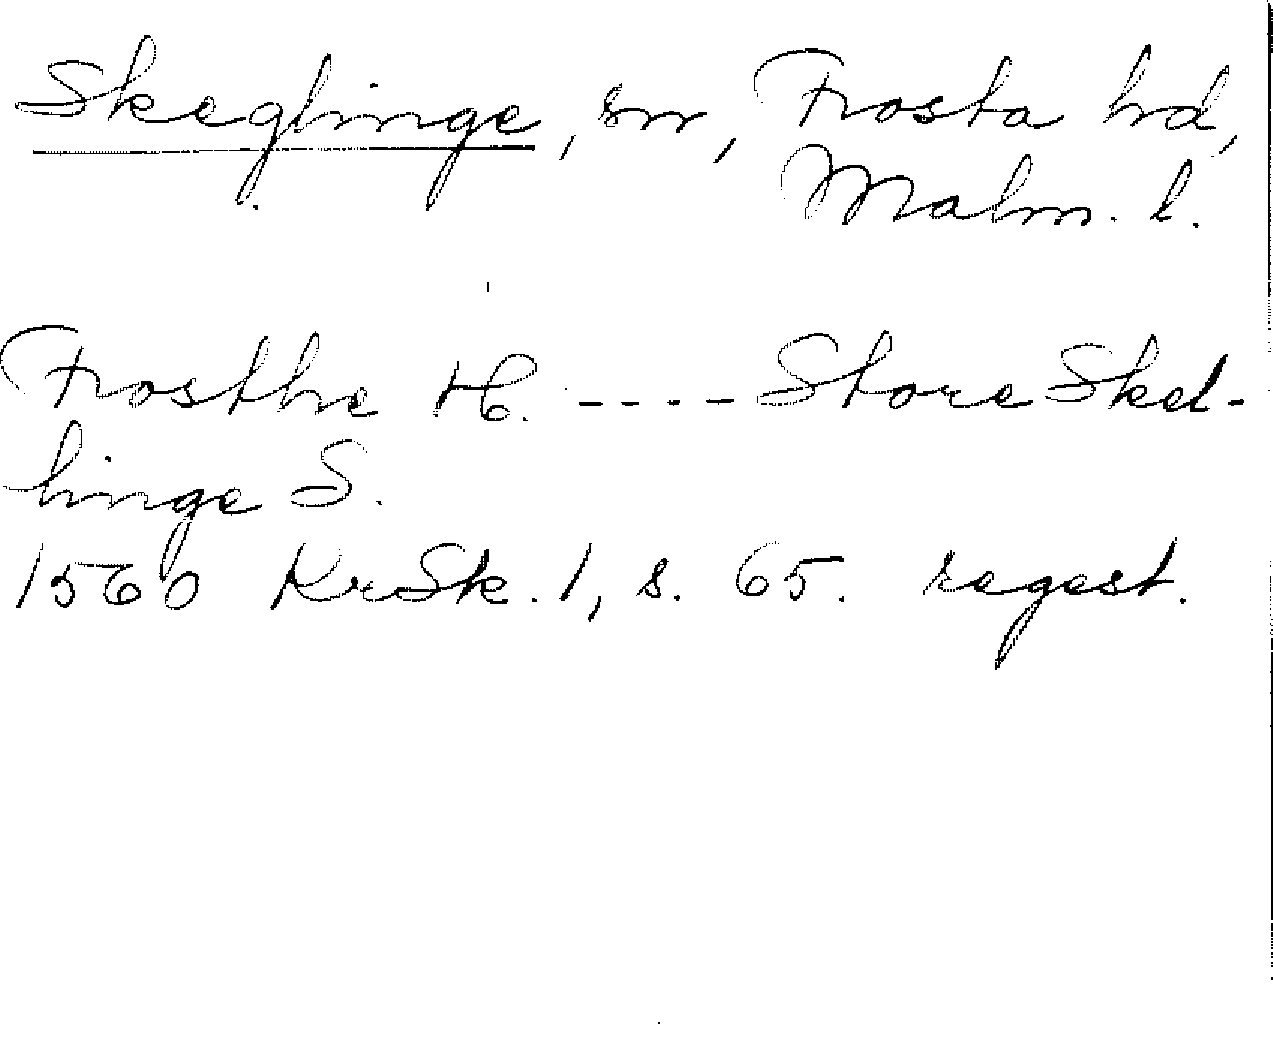 Skeglinge, sn, Frosta hd,
Malm. l.
Frosthe H. ---- Store Skel-
linge S.
1560 KrSk. 1, s. 65. regest.